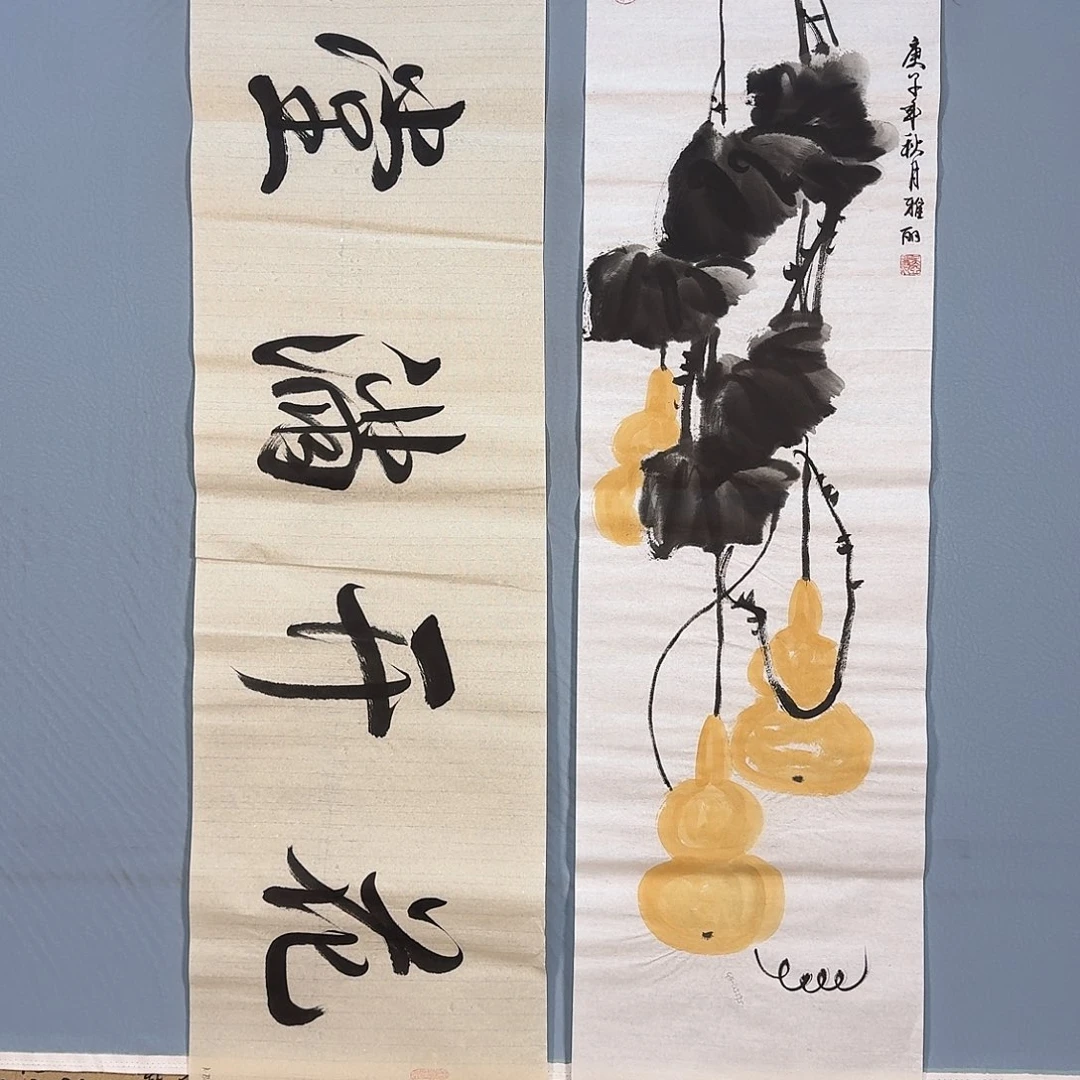 花开满堂
庚子年秋月雅丽